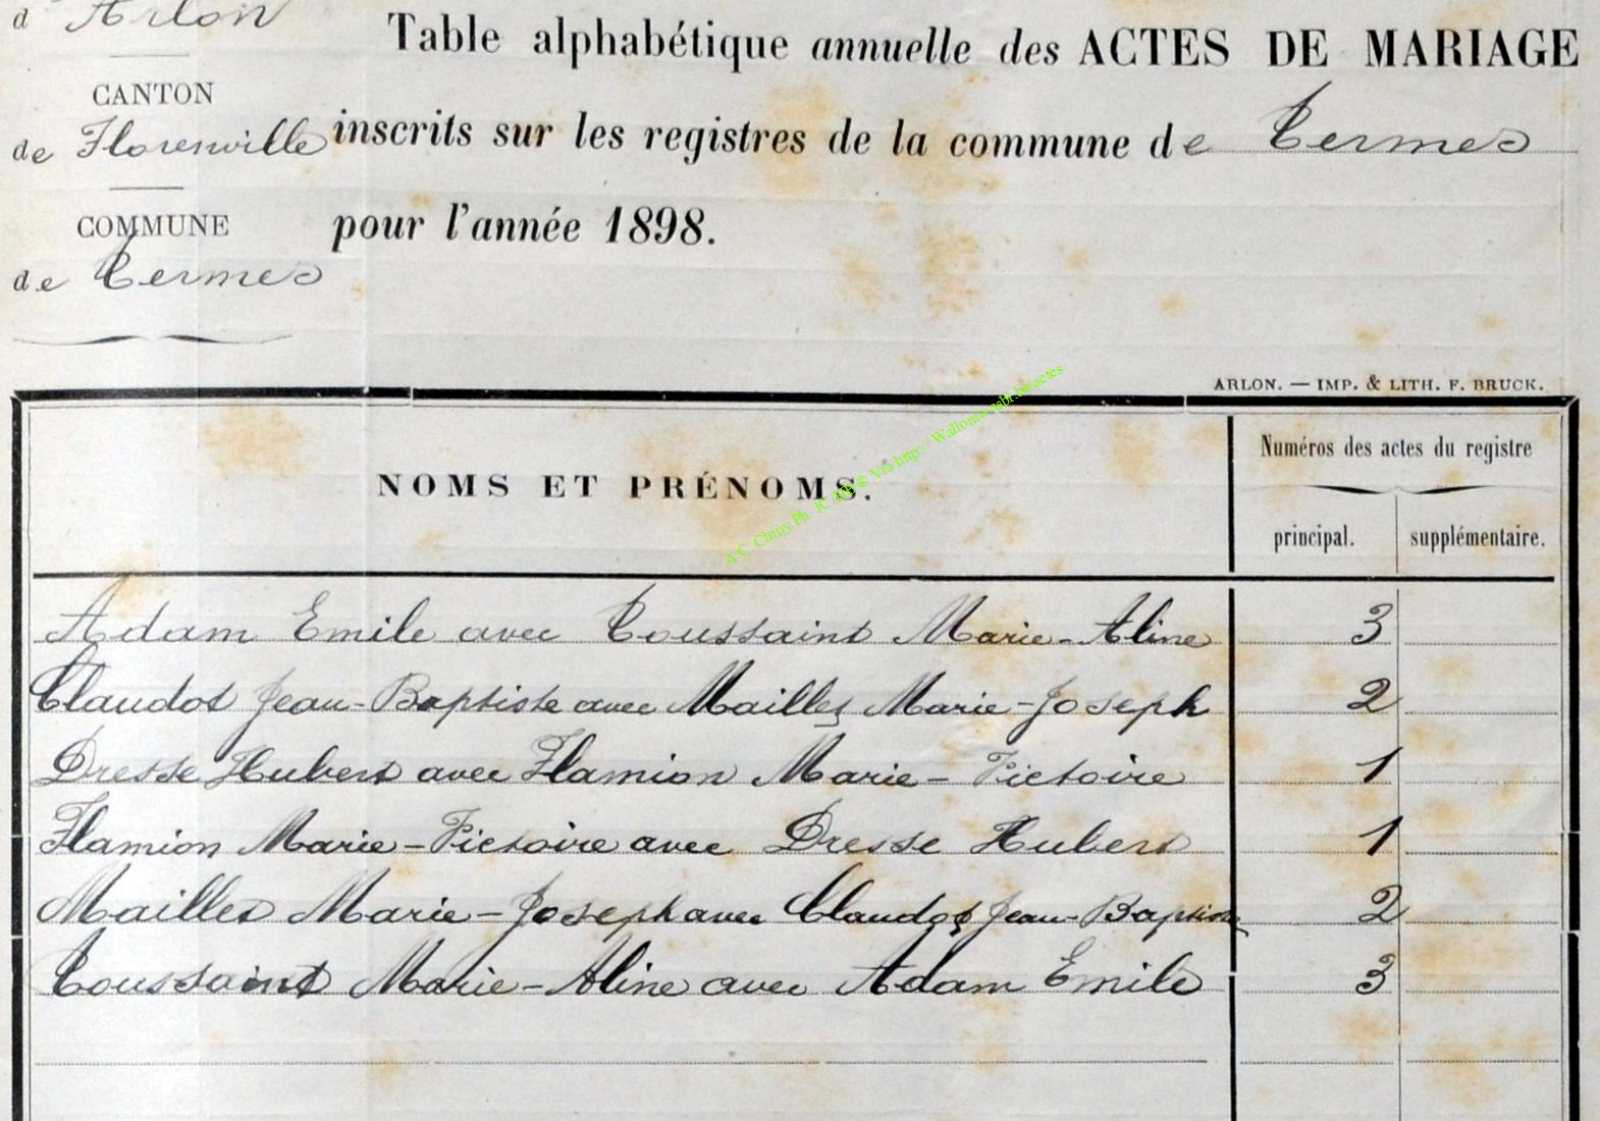 d' Arlon
Table alphabétique annuelle des ACTES DE MARIAGE
CANTON
de Florenville
inscrits sur les registres de la commune de Termes
COMMUNE
de Termes
pour l'année 1898.
ARLON. — IMP. & LITH. F. BRUCK.
NOMS ET PRÉNOMS.
Numéros des actes du registre
principal. supplémentaire.
Adam Emile avec Toussaint Marie-Aline 3
Claudot Jean-Baptiste avec Mailles Marie-Joseph 2
Dresse Hubert avec Flamion Marie-Victoire 1
Flamion Marie-Victoire avec Dresse Hubert 1
Mailles Marie-Joseph avec Claudot Jean-Baptiste 2
Toussaint Marie-Aline avec Adam Emile 3